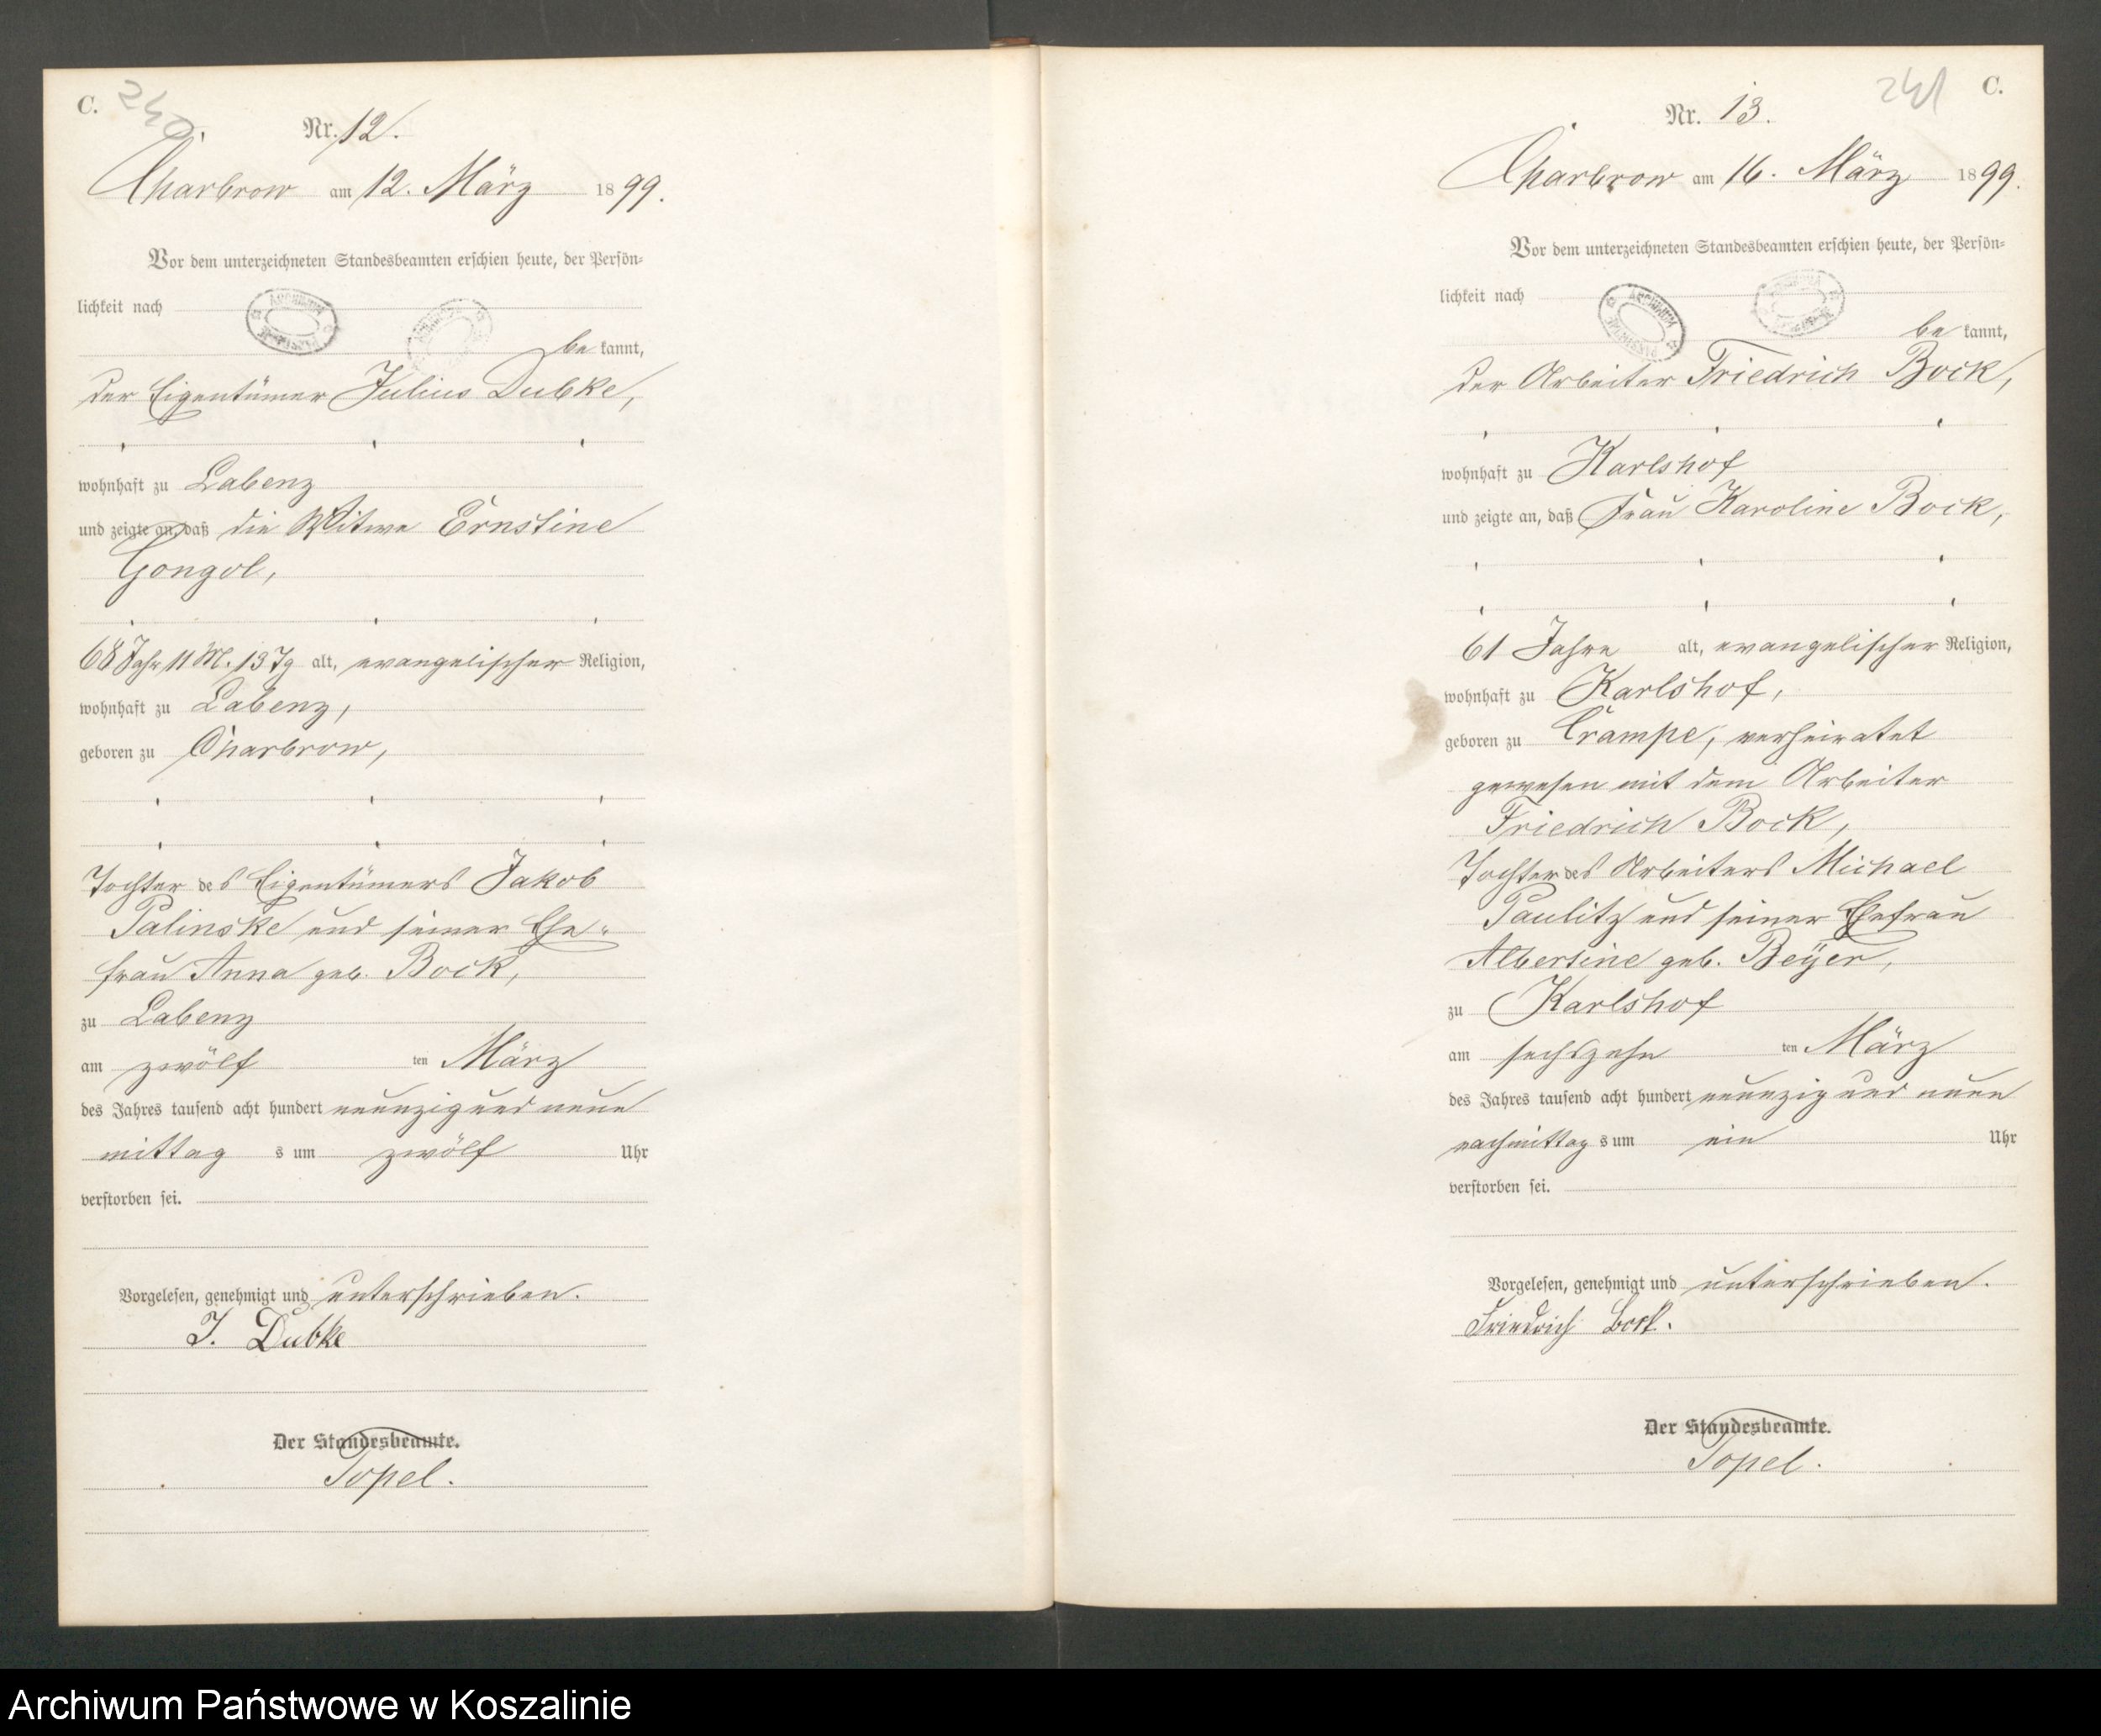 C. 240.
Nr. 12.
Charbrow am 12. März 1899.
Vor dem unterzeichneten Standesbeamten erschien heute, der Persön-
lichkeit nach
be kannt,
der Eigentümer Julius Dubke,
wohnhaft zu Labenz
und zeigte an, daß die Witwe Ernstine
Gongol,
68 Jahr 11 M. 13 Tg alt, evangelischer Religion,
wohnhaft zu Labenz,
geboren zu Charbrow,
Tochter des Eigentümers Jakob
Palinske und seiner Ehe-
frau Anna geb. Bock,
zu Labenz
am zwölf ten März
des Jahres tausend acht hundert neunzig und neun
mittag s um zwölf Uhr
verstorben sei.
Vorgelesen, genehmigt und unterschrieben.
J. Dubke
Der Standesbeamte.
Topel.
241 C.
Nr. 13.
Charbrow am 16. März 1899.
Vor dem unterzeichneten Standesbeamten erschien heute, der Persön-
lichkeit nach
be kannt,
der Arbeiter Friedrich Bock,
wohnhaft zu Karlshof
und zeigte an, daß Frau Karoline Bock,
61 Jahre alt, evangelischer Religion,
wohnhaft zu Karlshof,
geboren zu Crampe, verheiratet
gewesen mit dem Arbeiter
Friedrich Bock,
Tochter des Arbeiters Michael
Paulitz und seiner Ehefrau
Albertine geb. Beÿer,
zu Karlshof
am sechszehn ten März
des Jahres tausend acht hundert neunzig und neun
nachmittag s um ein Uhr
verstorben sei.
Vorgelesen, genehmigt und unterschrieben.
Friedrich Bock.
Der Standesbeamte.
Topel.
Archiwum Państwowe w Koszalinie